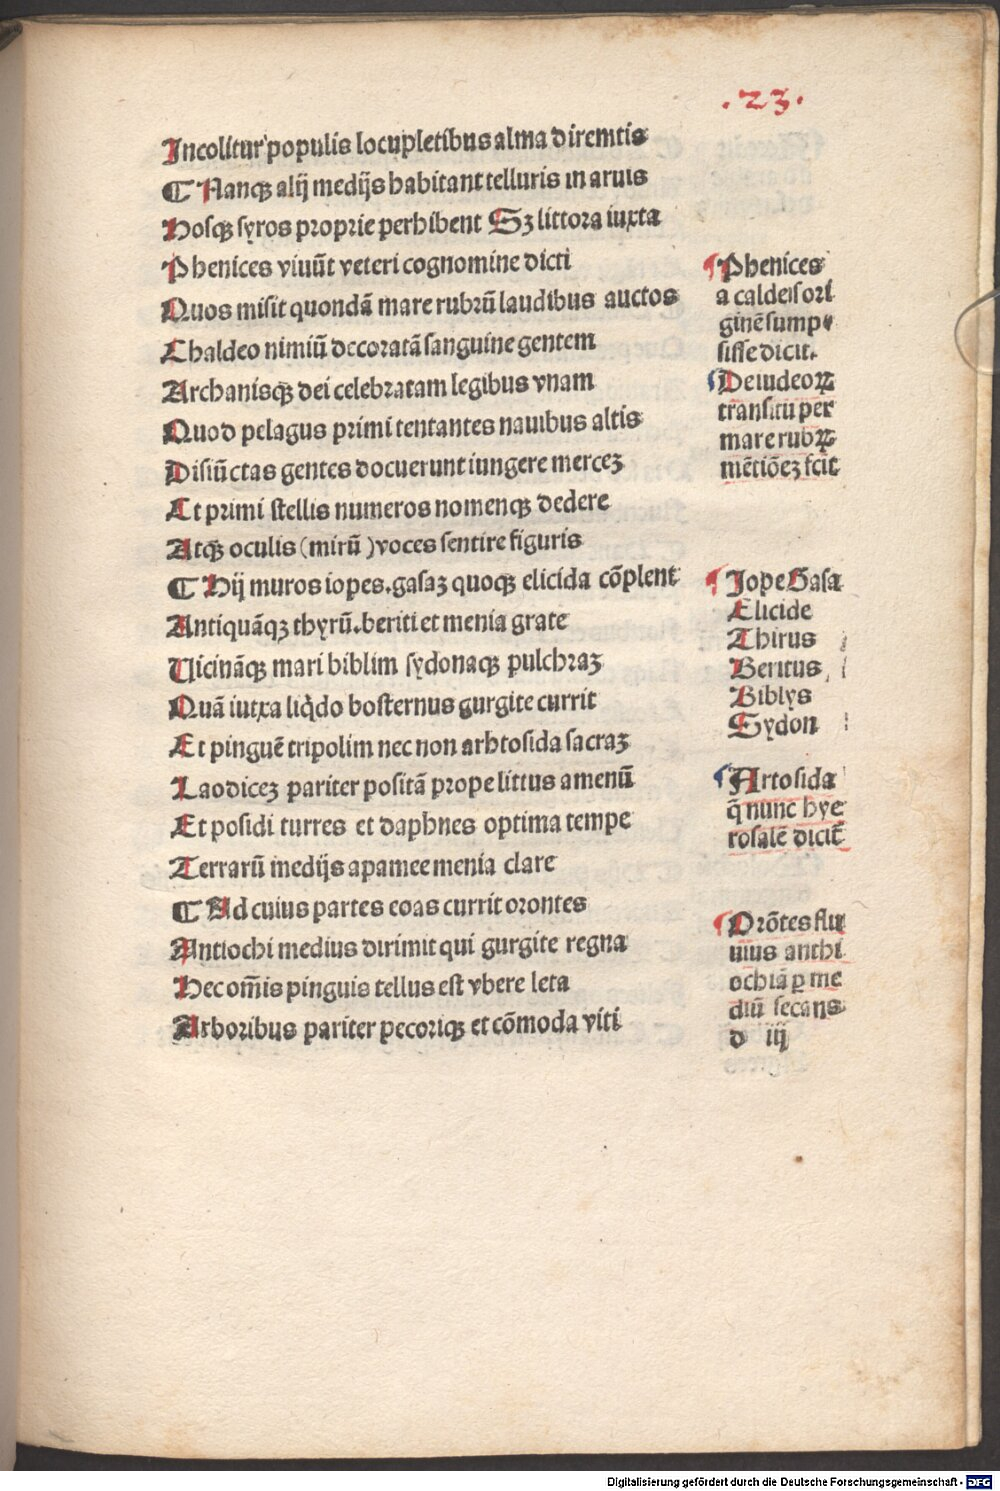 .23.
Incolitur populis locupletibus alma diremtis
¶ Nanqꝫ alij medijs habitant telluris in aruis
Hosqꝫ syros proprie perhibent Sꝫ littora iuxta
Phenices viuūt veteri cognomine dicti
Quos misit quondā mare rubrū laudibus auctos
Chaldeo nimiū decoratā sanguine gentem
Archanisqꝫ dei celebratam legibus vnam
Quod pelagus primi tentantes nauibus altis
Disiūctas gentes docuerunt iungere merceꝫ
Et primi stellis numeros nomenqꝫ dedere
Atqꝫ oculis (mirū) voces sentire figuris
¶ Hij muros iopes.gasaꝫ quoqꝫ elicida cōplent
Antiquāqꝫ thyrū.beriti et menia grate
Uicināqꝫ mari biblim sydonaqꝫ pulchraꝫ
Quā iutxa liq̇do bosternus gurgite currit
Et pinguē tripolim nec non arhtosida sacraꝫ
Laodiceꝫ pariter positā prope littus amenū
Et posidi turres et daphnes optima tempe
Terrarū medijs apamee menia clare
¶ Ad cuius partes eoas currit orontes
Antiochi medius dirimit qui gurgite regna
Hec om̄is pinguis tellus est vbere leta
Arboribus pariter pecoriqꝫ et cōmoda viti
Phenices
a caldeis ori
ginē sump
sisse dicit.
De iudeoꝝ
transitu per
mare rubꝝ
mētiōeꝫ fcit
Jope Gasa
Elicide
Thirus
Beritus
Biblys
Sydon
Artosida
q̄ nunc hye
rosalē dicit̄
Orōtes flu
uius anthi
ochiā ꝑ me
diū secans
d iij
Digitalisierung gefördert durch die Deutsche Forschungsgemeinschaft - DFG